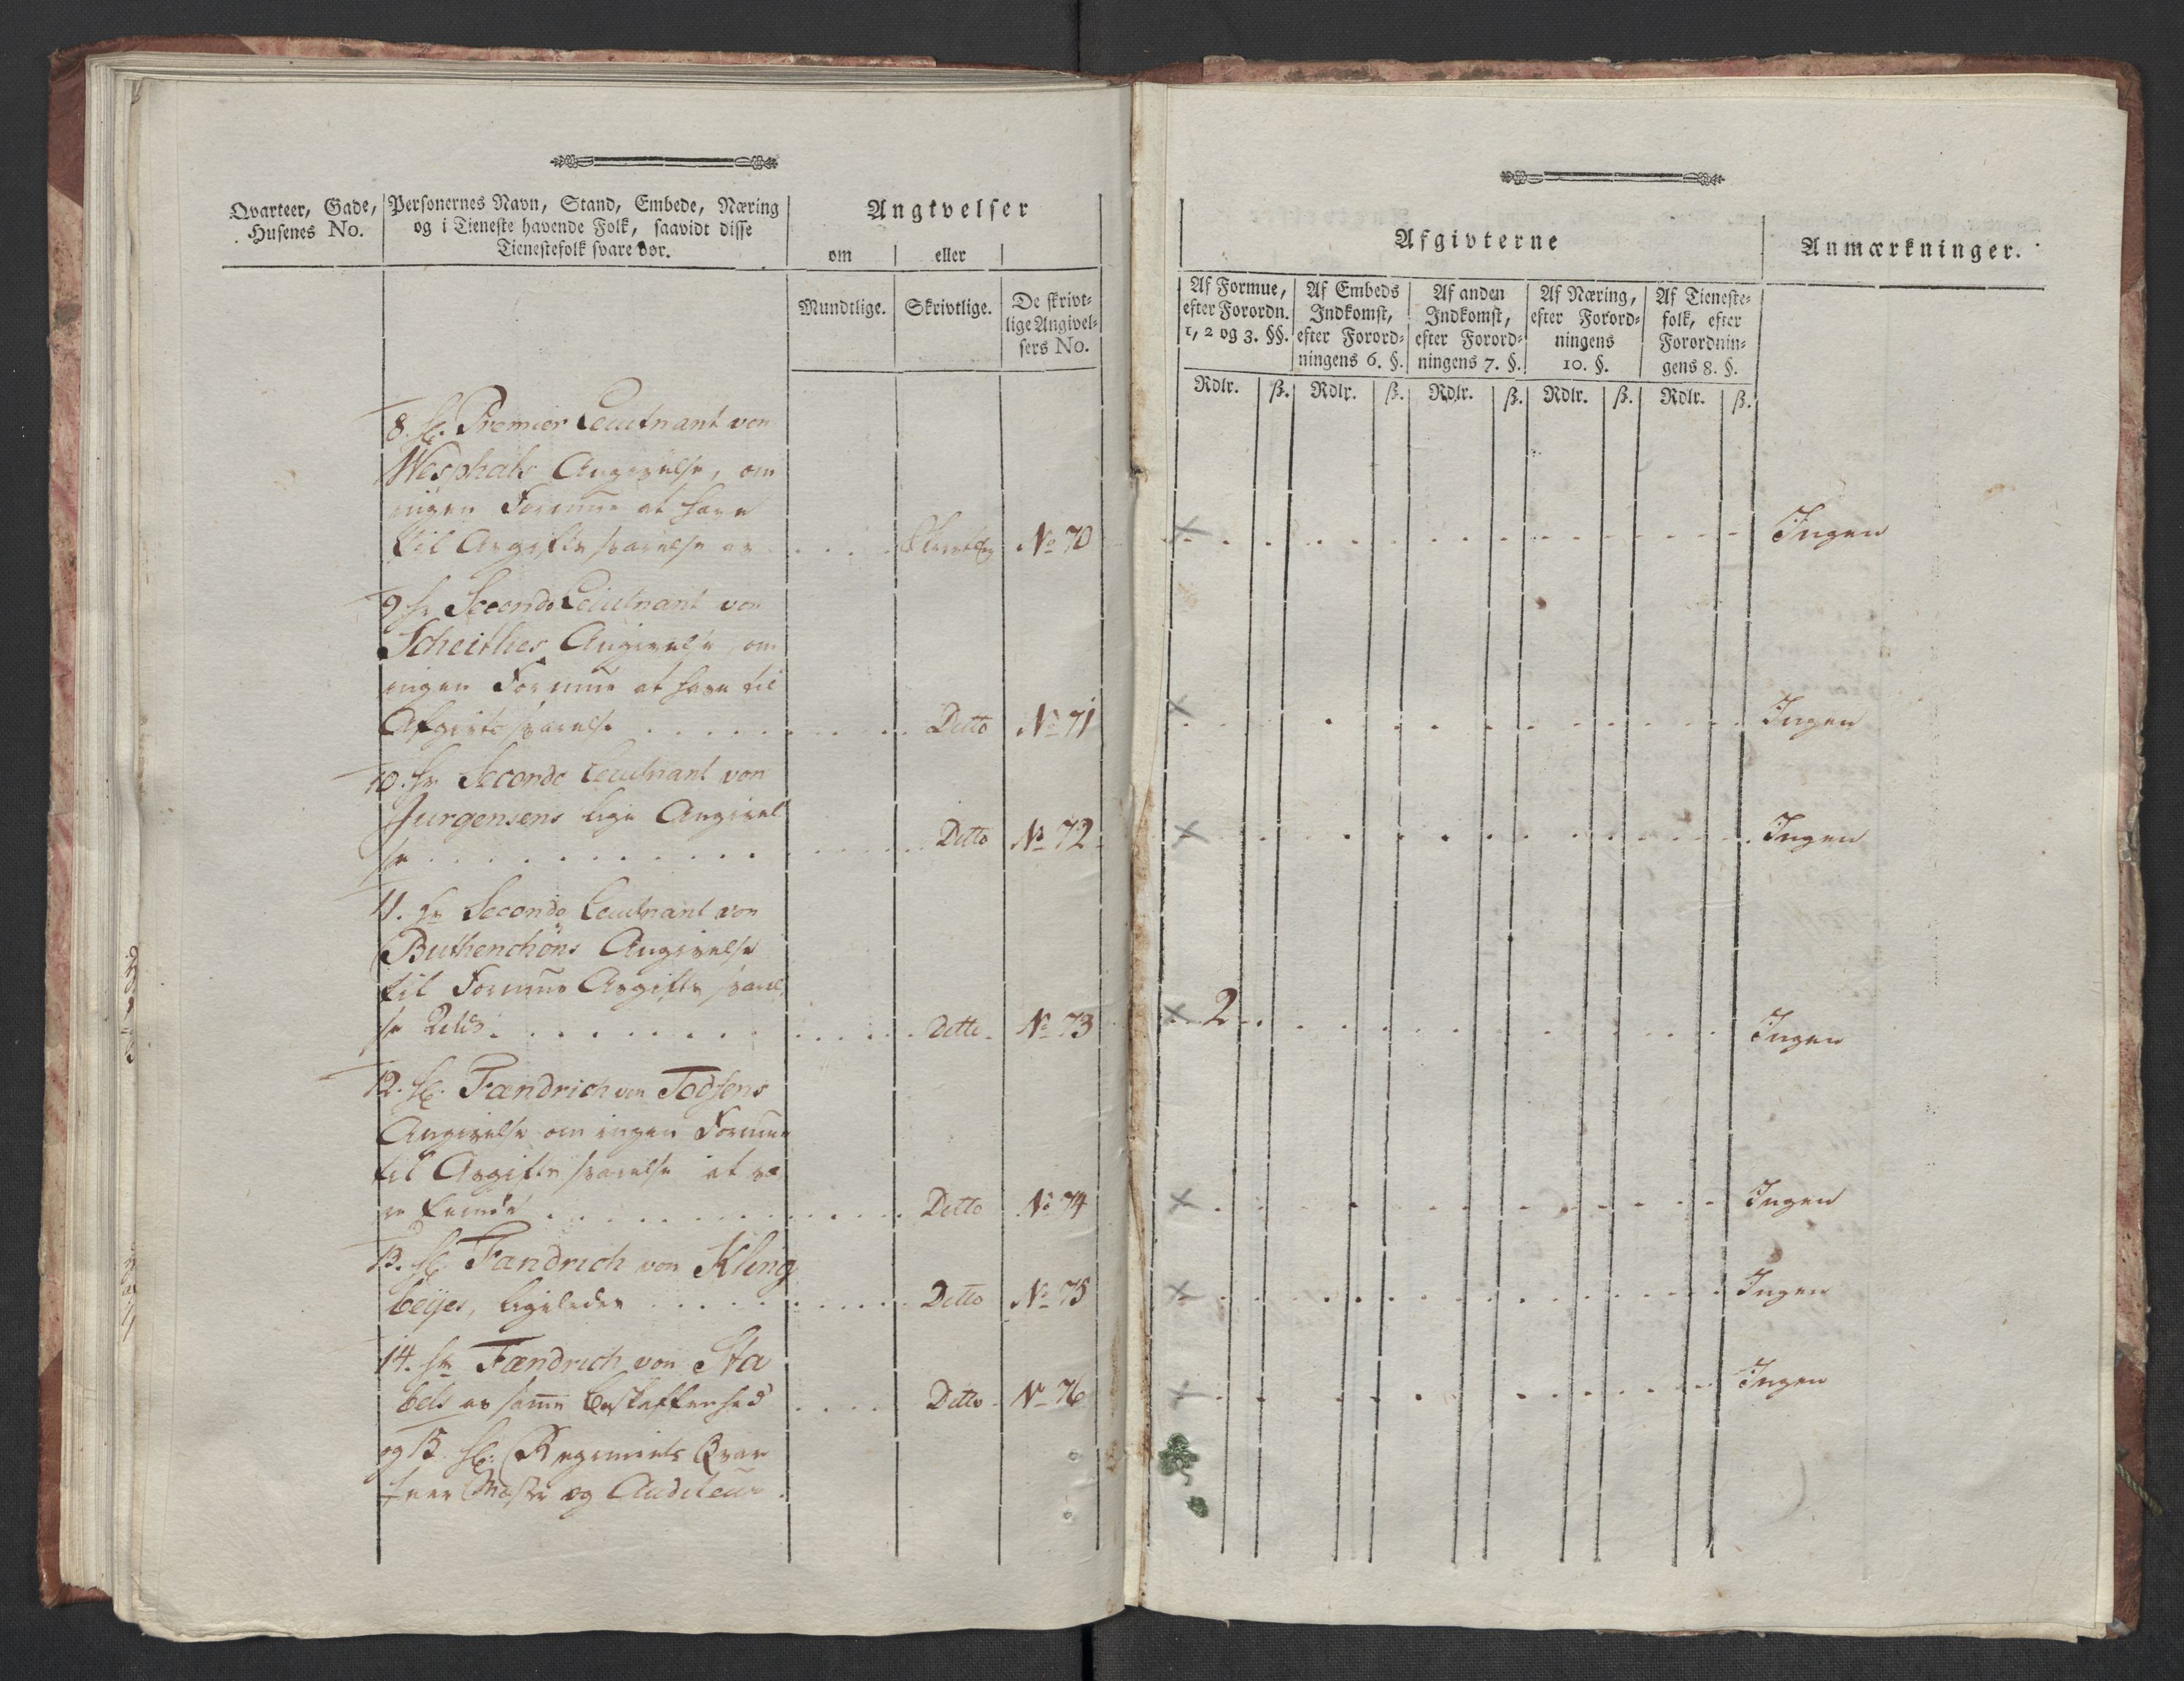 Qvarteer, Gade,
Husenes No.
Personernes Navn, Stand, Embede, Næring
og i Tieneste havende Folk, saavidt disse
Tienestefolk svare bør.
Angivelser
om eller
Mundtlige. Skrivtlige. De skrivt-
lige Angivel-
sers No.
8. Hr. Premier Leutnant von
Wesphals Angivelse, om
ingen Formue at have
til Avgifts svarelse er . . . . Skrivtlig No 70
9. Hr Seconde Leiutnant von
Scheithes Angivelse, om
ingen Formue at have til
Afgivts svarelse . . . . Ditto No 71
10. Hr Seconde Leutnant von
Jurgensens lige Angivel
se . . . . Ditto No 72
11. Hr Seconde Leutnant von
Buthenchöns Angivelse
til Formue Avgifts svarel
se 2 . . . . Ditto No 73
12. Hr. Fændrich von Todsens
Angivelse om ingen Formue
til Avgifts svarelse at
. . . . Ditto No 74
13. Hr. Fændrich von Kling
beijes, ligeledes . . . . Ditto No 75
14. Hr Fændrich von Sta
bels as samme beskaffenhed . . . . Ditto No 76
og 15 Hr. Regiments Qvar
teer Mester og Auditeur
Afgivterne
Anmærkninger.
Af Formue,
efter Forordn.
1, 2 og 3. §§.
Af Embeds
Indkomst,
efter Forord-
ningens 6. §.
Af anden
Indkomst,
efter Forord-
ningens 7. §.
Af Næring,
efter Forord-
ningens
10. §.
Af Tieneste-
folk, efter
Forordnin-
gens 8. §.
Rdlr. ß. Rdlr. ß. Rdlr. ß. Rdlr. ß. Rdlr. ß.
x . . . . Ingen
x . . . . Ingen
x . . . . Ingen
x 2 . . . . Ingen
x . . . . Ingen
x . . . . Ingen
x . . . . Ingen